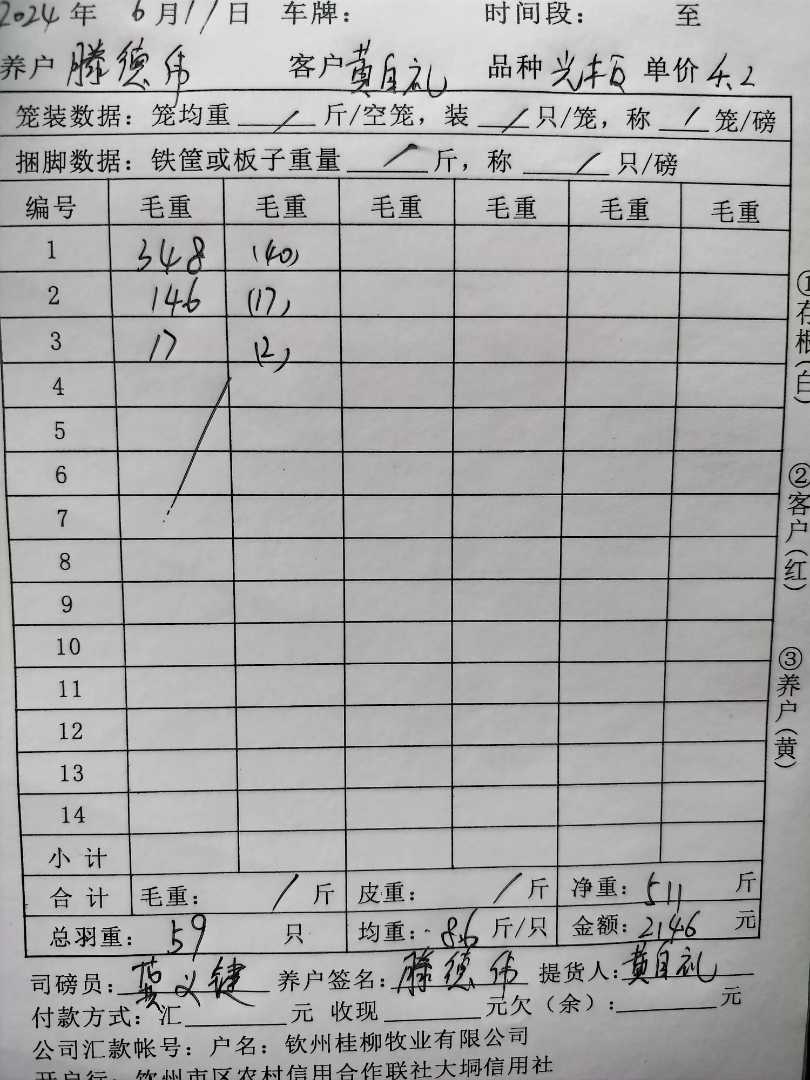 2024 年 6 月 17 日 车牌： 时间段： 至
养户 滕德伟 客户 黄自礼 品种 单价 4.2
笼装数据：笼均重 / 斤/空笼，装 / 只/笼，称 / 笼/磅
捆脚数据：铁筐或板子重量 / 斤，称 / 只/磅
编号 毛重 毛重 毛重 毛重 毛重 毛重
1 348 (40)
2 146 (17)
3 17 (2)
4
5
6
7
8
9
10
11
12
13
14
小计
合计 毛重： / 斤 皮重： / 斤 净重：511 斤
总羽重：59 只 均重：8.6 斤/只 金额：2146 元
司磅员： 养户签名：滕德伟 提货人：黄自礼
付款方式：汇 元 收现 元欠（余）： 元
公司汇款帐号：户名：钦州桂柳牧业有限公司
开户行：钦州市区农村信用合作联社大垌信用社
①存根（白）
②客户（红）
③养户（黄）